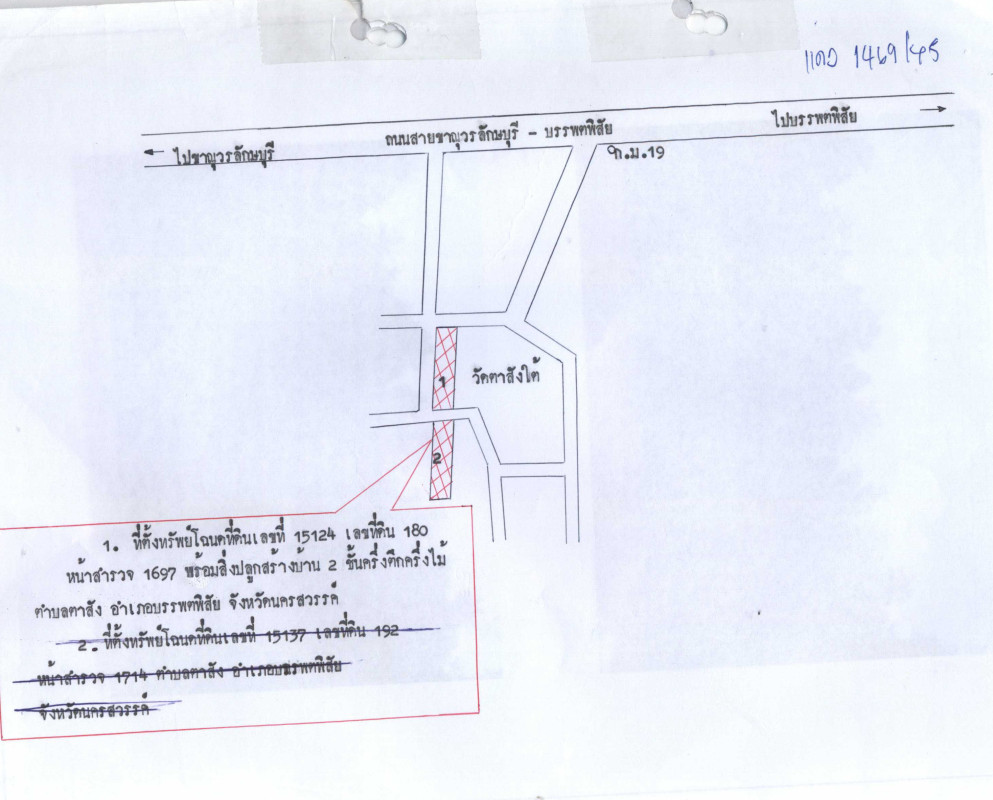 แดง 1469/45
ไปบรรพตพิสัย
ถนนสายขาณุวรลักษบุรี - บรรพตพิสัย
ไปขาณุวรลักษบุรี
ก.ม.19
วัดตาสังใต้
1
2
1. ที่ตั้งทรัพย์โฉนดที่ดินเลขที่ 15124 เลขที่ดิน 180
หน้าสำรวจ 1697 พร้อมสิ่งปลูกสร้างบ้าน 2 ชั้นครึ่งตึกครึ่งไม้
ตำบลตาสัง อำเภอบรรพตพิสัย จังหวัดนครสวรรค์
2. ที่ตั้งทรัพย์โฉนดที่ดินเลขที่ 15137 เลขที่ดิน 192
หน้าสำรวจ 1714 ตำบลตาสัง อำเภอบรรพตพิสัย
จังหวัดนครสวรรค์